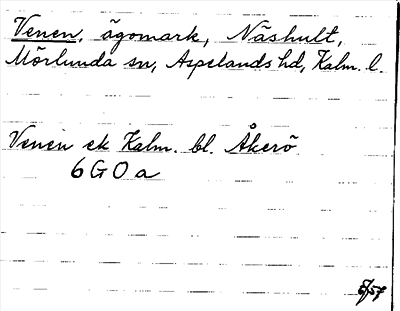 Venen, ägomark, Näshult,
Mörlunda sn, Aspelands hd, Kalm. l.
Venen ek Kalm. bl. Åkerö
6 G 0 a
8/57